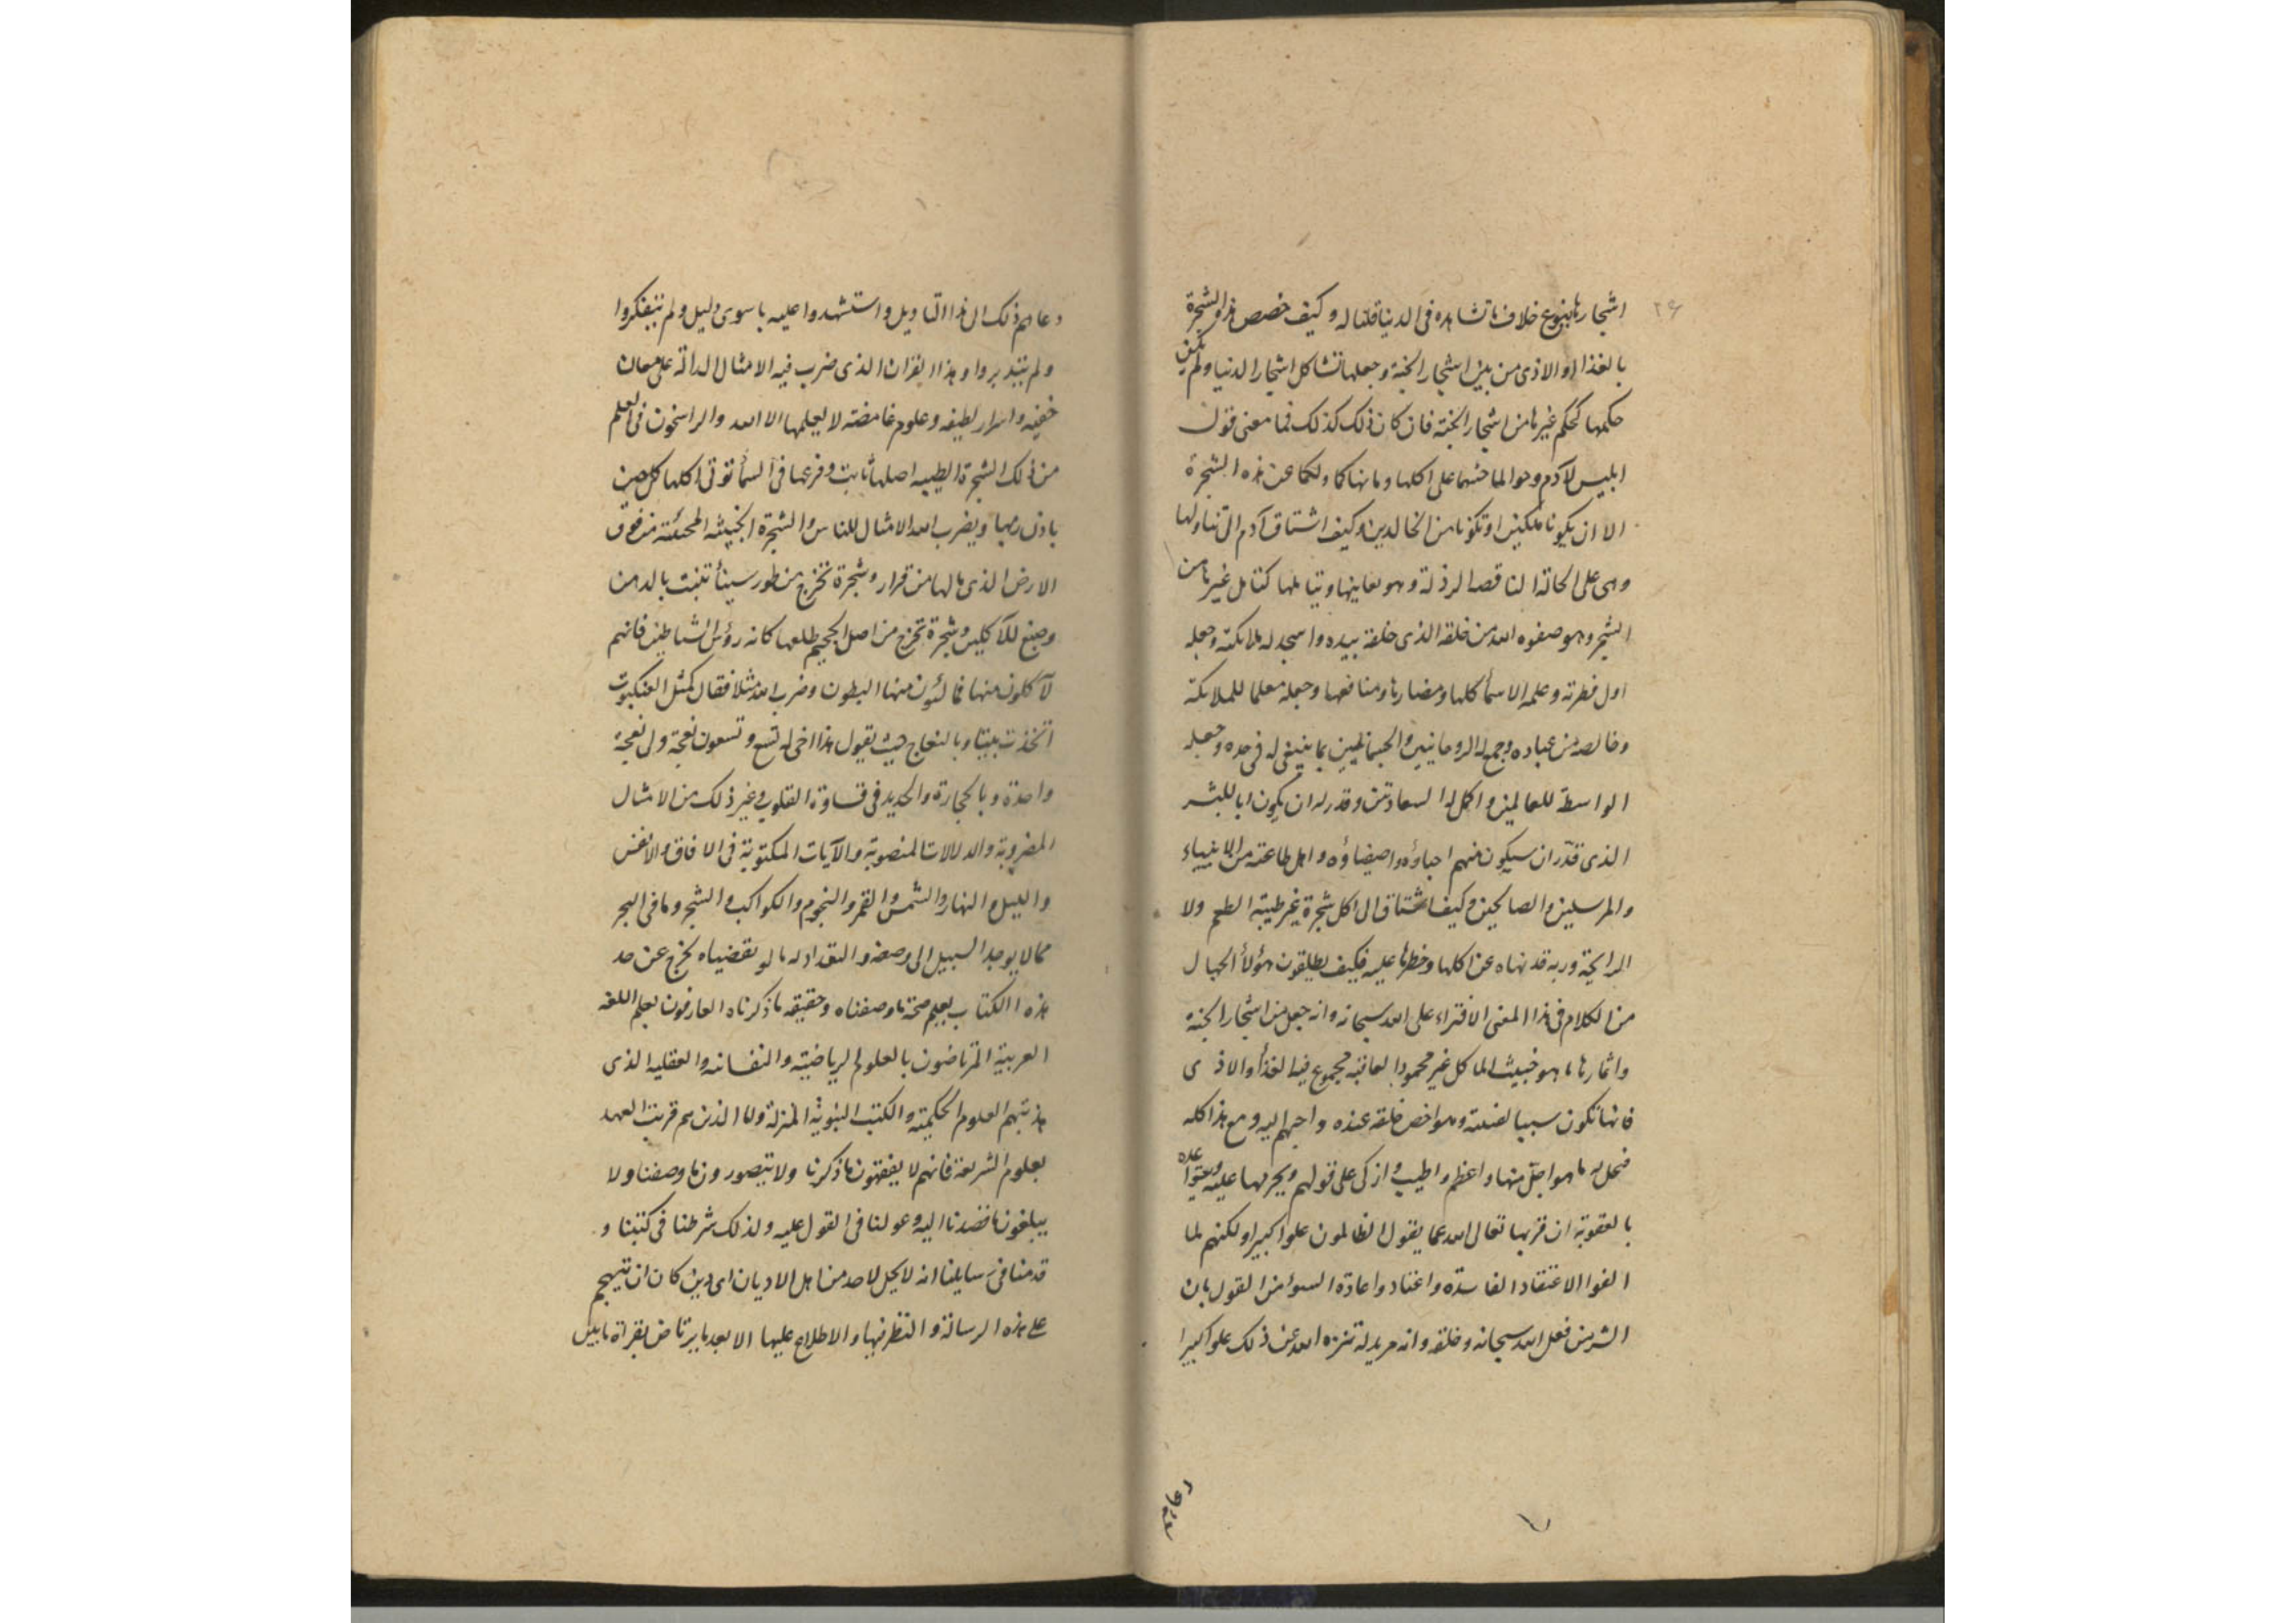 ٢۶
اشجارها بنوع خلاف ما تشاهده فى الدنيا قلنا له وكيف خصص هذه الشجرة
بالغذا والاذى من بين اشجار الجنة وجعلها تشاكل اشجار الدنيا ولم يكن
حكمها كحكم غيرها من اشجار الجنة فان كان ذلك كذلك فما معنى قول
ابليس لآدم وحوا لما حثهما على اكلها وما نهاكما ربكما عن هذه الشجرة
الا ان يكونا ملكين او تكونا من الخالدين وكيف اشتاق آدم الى تناولها
وهى على الحالة الناقصه الرذلة وهو يعاينها ويتاملها كتامل غيرها من
الشجر وهو صفوه الله من خلقه الذى خلقه بيده واسجد له ملائكته وجعله
اول فطرته وعلمه الاسمأ كلها ومضارها ومنافعها وجعله معلما للملايكة
وخالصه من عباده وجمع له الروحانيين والجسمانيين بما ينبغى له فى حده وجعله
الواسطة للعالمين واكمل له السعادتين وقدر له ان يكون ابا للبشر
الذى قدّر ان سيكون منهم احباؤه واصفياؤه واهل طاعته من الانبياء
والمرسلين والصالحين وكيف اشتاق الى اكل شجرة غير طيبة الطعم ولا
الرايحة وربه قد نهاه عن اكلها وحظرها عليه فكيف يطلقون هؤلأ الجهال
من الكلام فى هذا المعنى الافتراء على الله سبحانه وانه جعل من اشجار الجنة
واثمارها ما هو خبيث الماكل غير محمود العاقبة مجموع فيه الغذأ والاذى
فانها تكون سببا لضلته وهو اخص خلقه عنده واحبهم اليه ومع هذا كله
فيحل له ما هو اجلّ منها واعظم واطيب وازكى على قولهم ويحرمها عليه ويتواعده
بالعقوبة ان قربها تعالى الله عما يقول الظالمون علوا كبيرا ولكنهم لما
الفوا الاعتقاد الفاسدة واعتادوا عادة السوء من القول بان
الشر من فعل الله سبحانه وخلقه وانه مريد له تنزه الله عن ذلك علوا كبيرا
دعاهم ذلك الى هذا التاويل واستشهدوا عليه باسوى دليل ولم يتفكروا
ولم يتدبروا هذا القران الذى ضرب فيه الامثال الدالة على معان
خفيه واسرار لطيفه وعلوم غامضة لا يعلمها الا الله والراسخون فى العلم
من ذلك الشجرة الطيبه اصلها ثابت وفرعها فى السمأ تؤتى اكلها كل حين
باذن ربها ويضرب الله الامثال للناس والشجرة الخبيثه المجتثة من فوق
الارض الذى مالها من قرار وشجرة تخرج من طور سينأ تنبت بالدهن
وصبغ للآكلين وشجرة تخرج من اصل الجحيم طلعها كانه رؤس الشياطين فانهم
لآكلون منها فمالئون منها البطون وضرب الله مثلا فقال كمثل العنكبوت
اتخذت بيتا وبالنعاج حيث يقول هذا اخى له تسع وتسعون نعجة ولى نعجة
واحدة وبالحجارة والحديد فى قساوة القلوب وغير ذلك من الامثال
المضروبة والدلالات المنصوبة والآيات المكتوبة فى الافاق والانفس
والليل والنهار والشمس والقمر والنجوم والكواكب والشجر وما فى البحر
مما لا يوجد السبيل الى وصفه والتعداد له ما لو تقضيناه لخرج عن حد
هذه الكتاب يعلم صحة ما وصفناه وحقيقه ما ذكرناه العارفون بعلم اللغه
العربية المرتاضون بالعلوم الرياضيّة والنفسانيه والعقليه الذى
هذبتهم العلوم الحكيمّة والكتب النبويّة المنزلة واما الذين هم قريب العهد
بعلوم الشريعة فانهم لا يفقهون ما ذكرنا ولا يتصورون ما وصفنا ولا
يبلغون ما قصدنا اليه وعولنا فى القول عليه ولذلك شرطنا فى كتبنا و
قدمنا فى رسايلنا انه لا يحل لاحد من اهل الاديان اى دين كان ان يتهجم
على هذه الرسالة والنظر فيها والاطلاع عليها الا بعد ما يرتاض بقراة ما بين